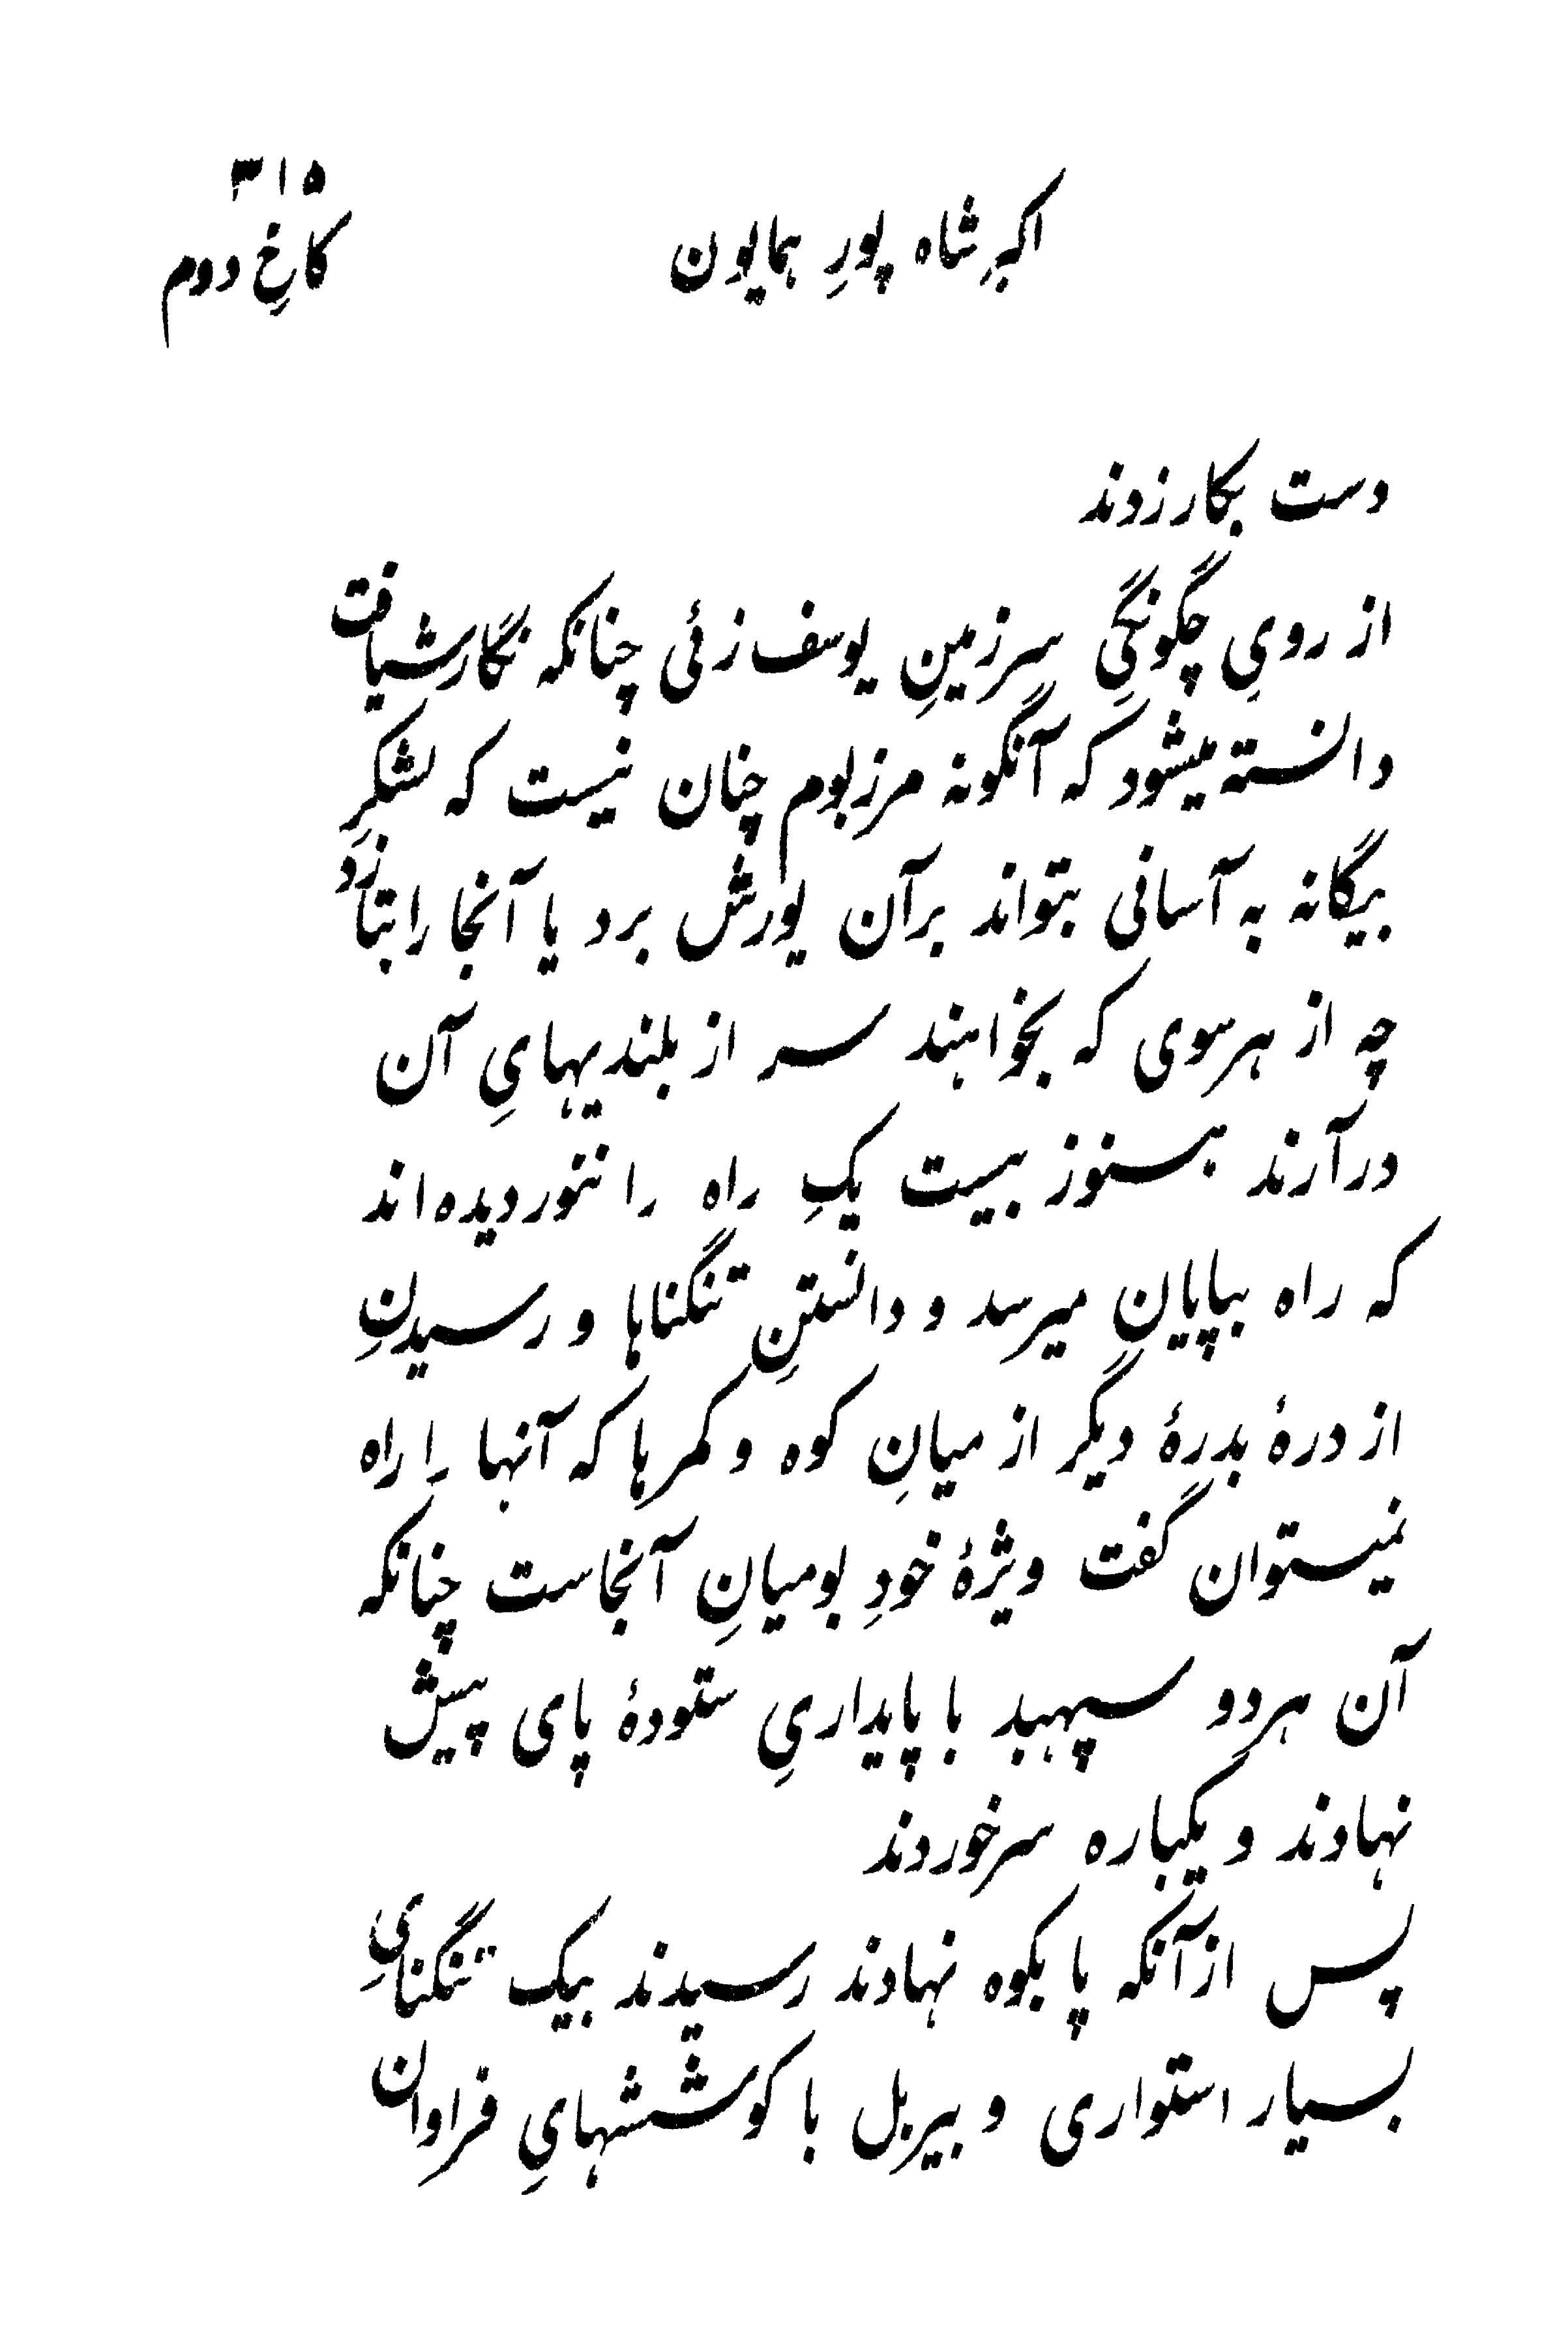 ۳۱۵
اکبرِ شاه پورِ همایون
کاخِ دوم
دست بکار زدند
از رویِ چگونگیِ سرزمینِ یوسف زئی چنانکه نگارش یافت
دانسته میشود که آنگونه مرزبوم چنان نیست که لشکرِ
بیگانه به آسانی بتواند برآن یورش برد یا آنجا را بتازد
چه از هرسوی که بخواهند سر از بلندیهایِ آن
درآرند هنوز بیست یکِ راه را ننوردیده‌اند
که راه بپایان میرسد و دانستنِ تنگناها و رسیدنِ
از درهٔ بدرهٔ دیگر از میانِ کوه و کمرها که آنها را راه
نمیتوان گفت ویژهٔ خودِ بومیانِ آنجاست چنانکه
آن هردو سپهبد با پایداریِ ستودهٔ پای پیش
نهادند و یکباره سرخوردند
پس از آنکه پا بکوه نهادند رسیدند بیک تنگنایِ
بسیار استواری و بیربل با کوششهایِ فراوان